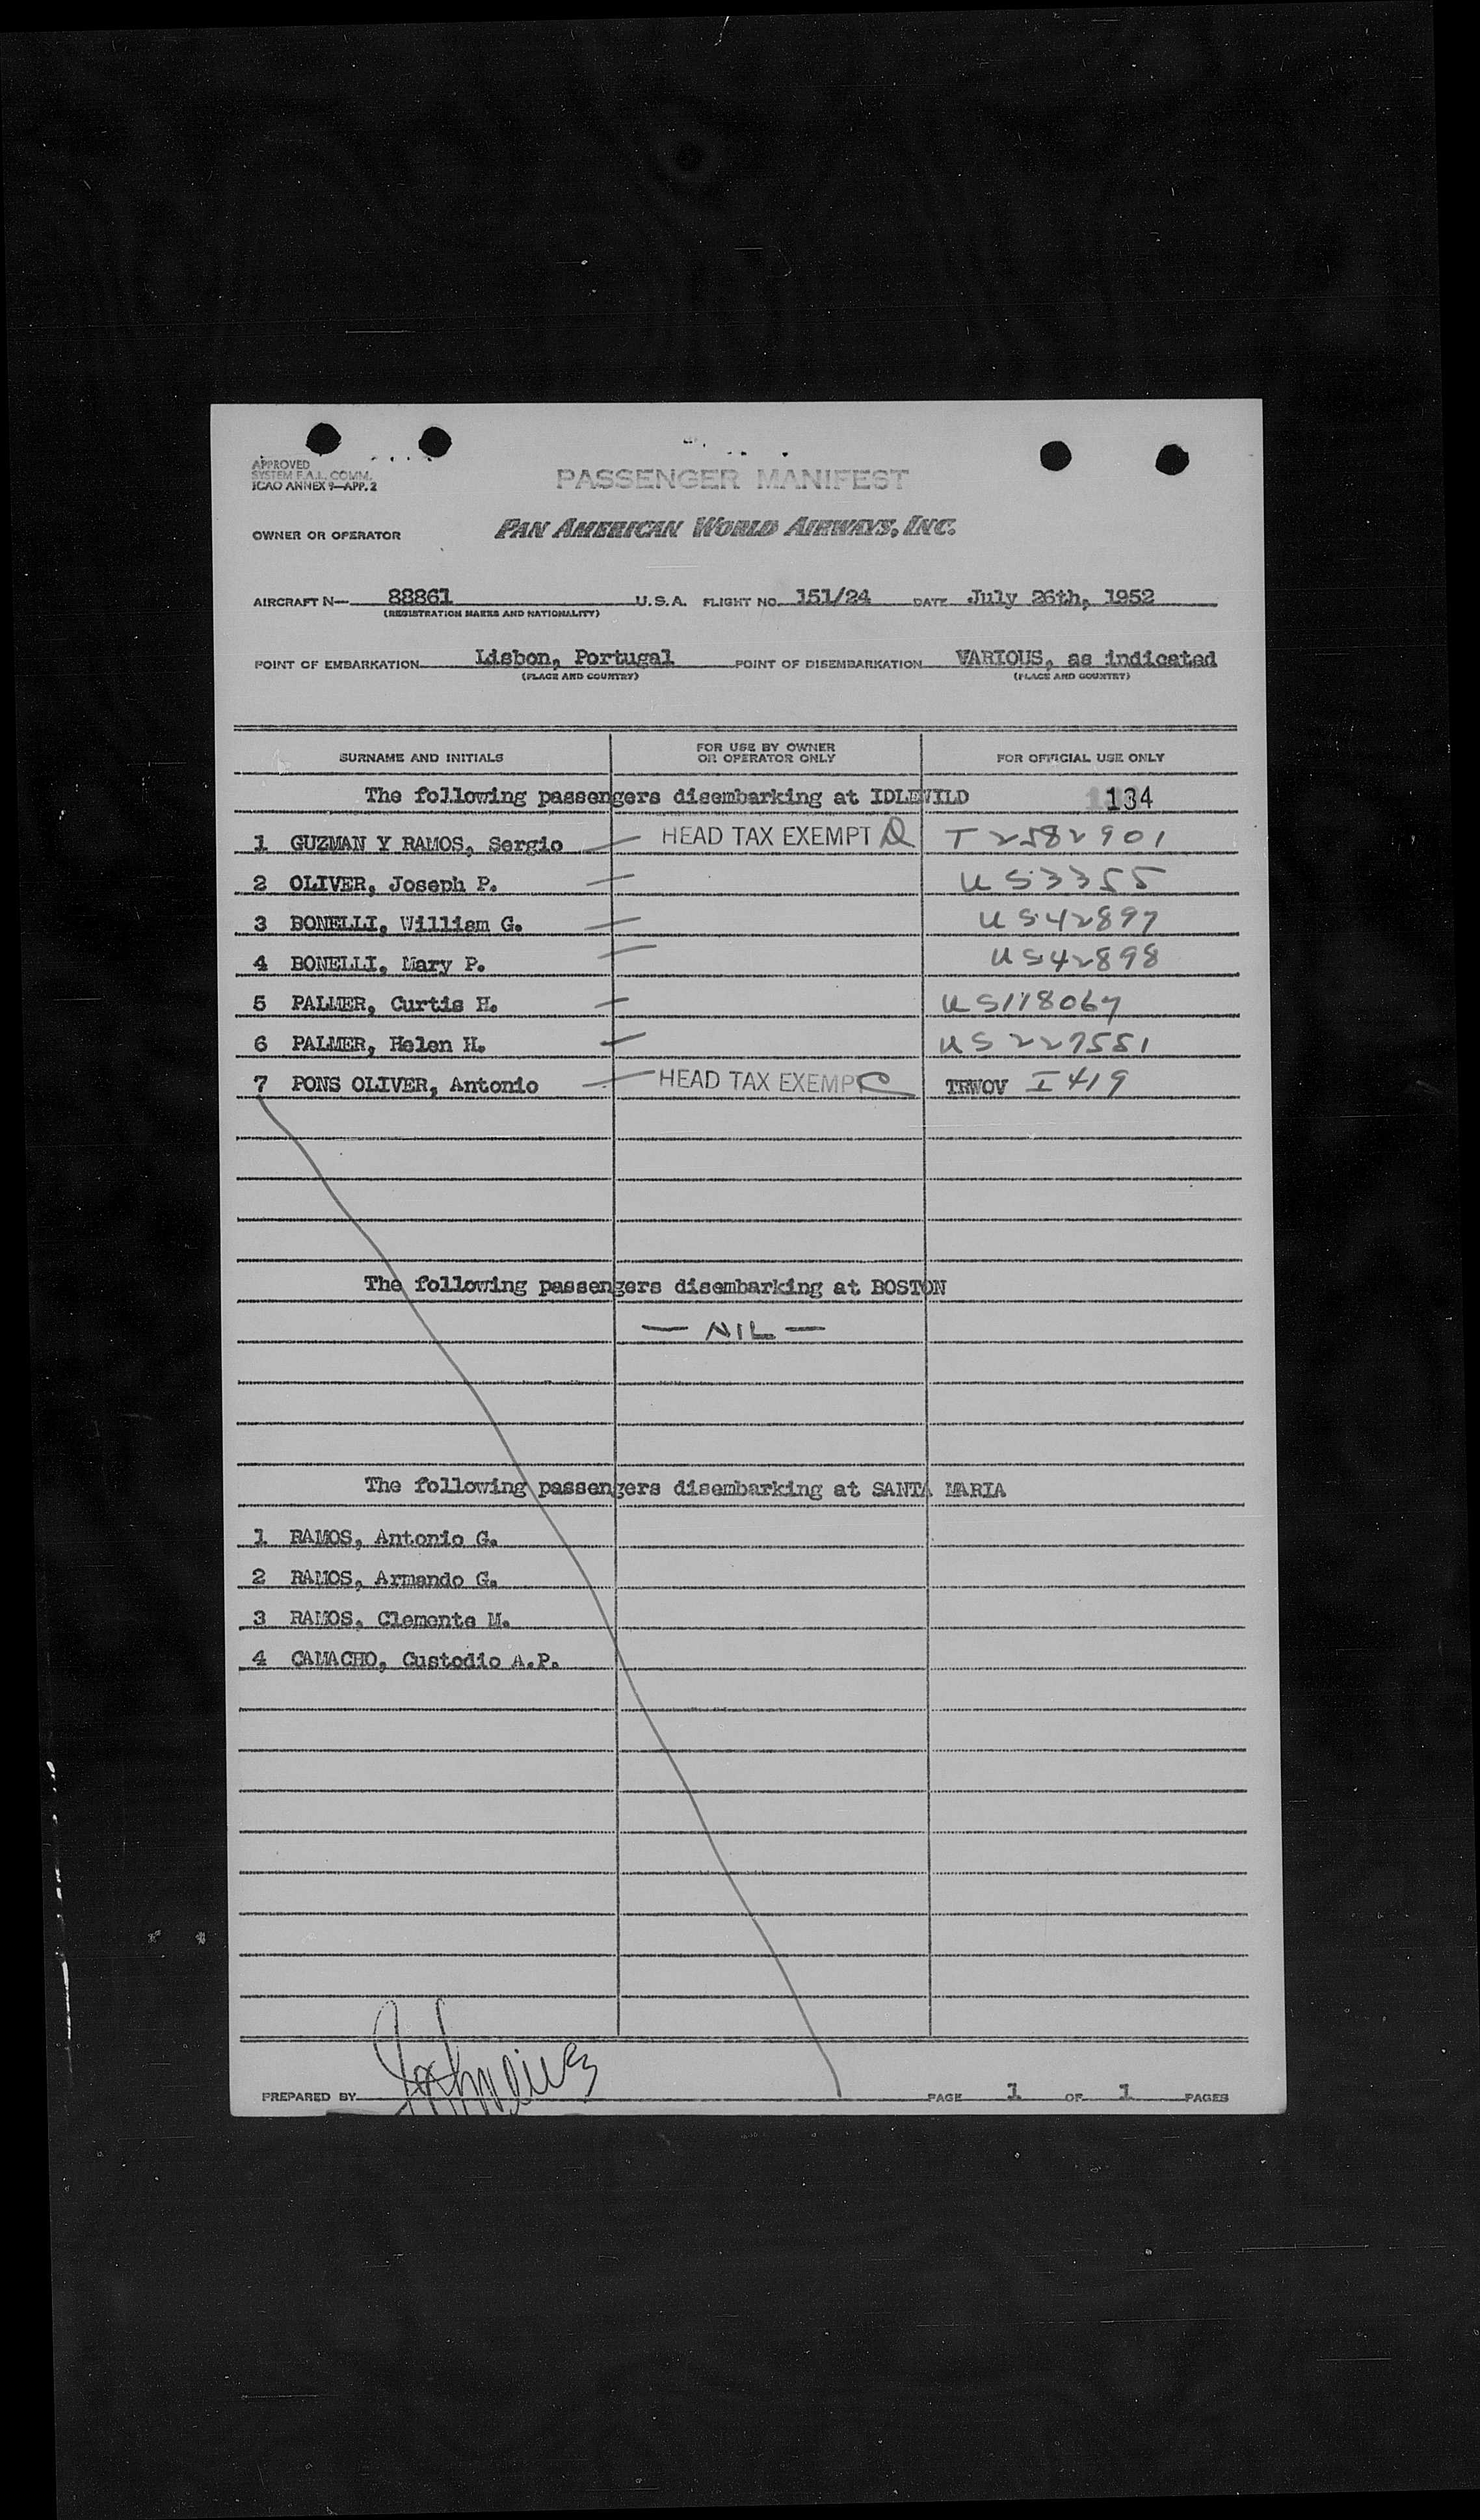 APPROVED
SYSTEM F.A.L. COMM.
ICAO ANNEX 9—APP. 2
PASSENGER MANIFEST
OWNER OR OPERATOR PAN AMERICAN WORLD AIRWAYS, INC.
AIRCRAFT N— 88861 U.S.A. FLIGHT NO. 151/24 DATE July 26th, 1952
(REGISTRATION MARKS AND NATIONALITY)
POINT OF EMBARKATION Lisbon, Portugal POINT OF DISEMBARKATION VARIOUS, as indicated
(PLACE AND COUNTRY) (PLACE AND COUNTRY)
SURNAME AND INITIALS FOR USE BY OWNER OR OPERATOR ONLY FOR OFFICIAL USE ONLY
The following passengers disembarking at IDLEWILD 134
1 GUZMAN Y RAMOS, Sergio — HEAD TAX EXEMPT T 2582901
2 OLIVER, Joseph P. — US3355
3 BONELLI, William G. — US42897
4 BONELLI, Mary P. — US42898
5 PALMER, Curtis H. — US118067
6 PALMER, Helen H. — US 227551
7 PONS OLIVER, Antonio — HEAD TAX EXEMPT TRWOV I 419
The following passengers disembarking at BOSTON
— NIL —
The following passengers disembarking at SANTA MARIA
1 RAMOS, Antonio G.
2 RAMOS, Armando G.
3 RAMOS, Clemente M.
4 CAMACHO, Custodio A.P.
PREPARED BY PAGE 1 OF 1 PAGES